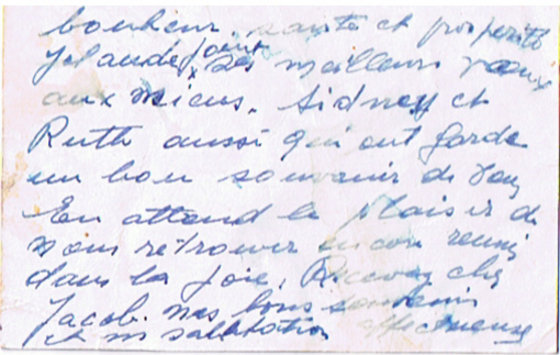 bonheur, santé et prosperité
Yolande joint ses meilleurs vœux
aux miens. Sidney et
Ruth aussi qui ont garde
un bon souvenir de vous
En attend le plaisir de
nous retrouver encore reunis
dans la joie, Recevez cher
Jacob. nos bons souvenirs
et nos salutation affectueuse